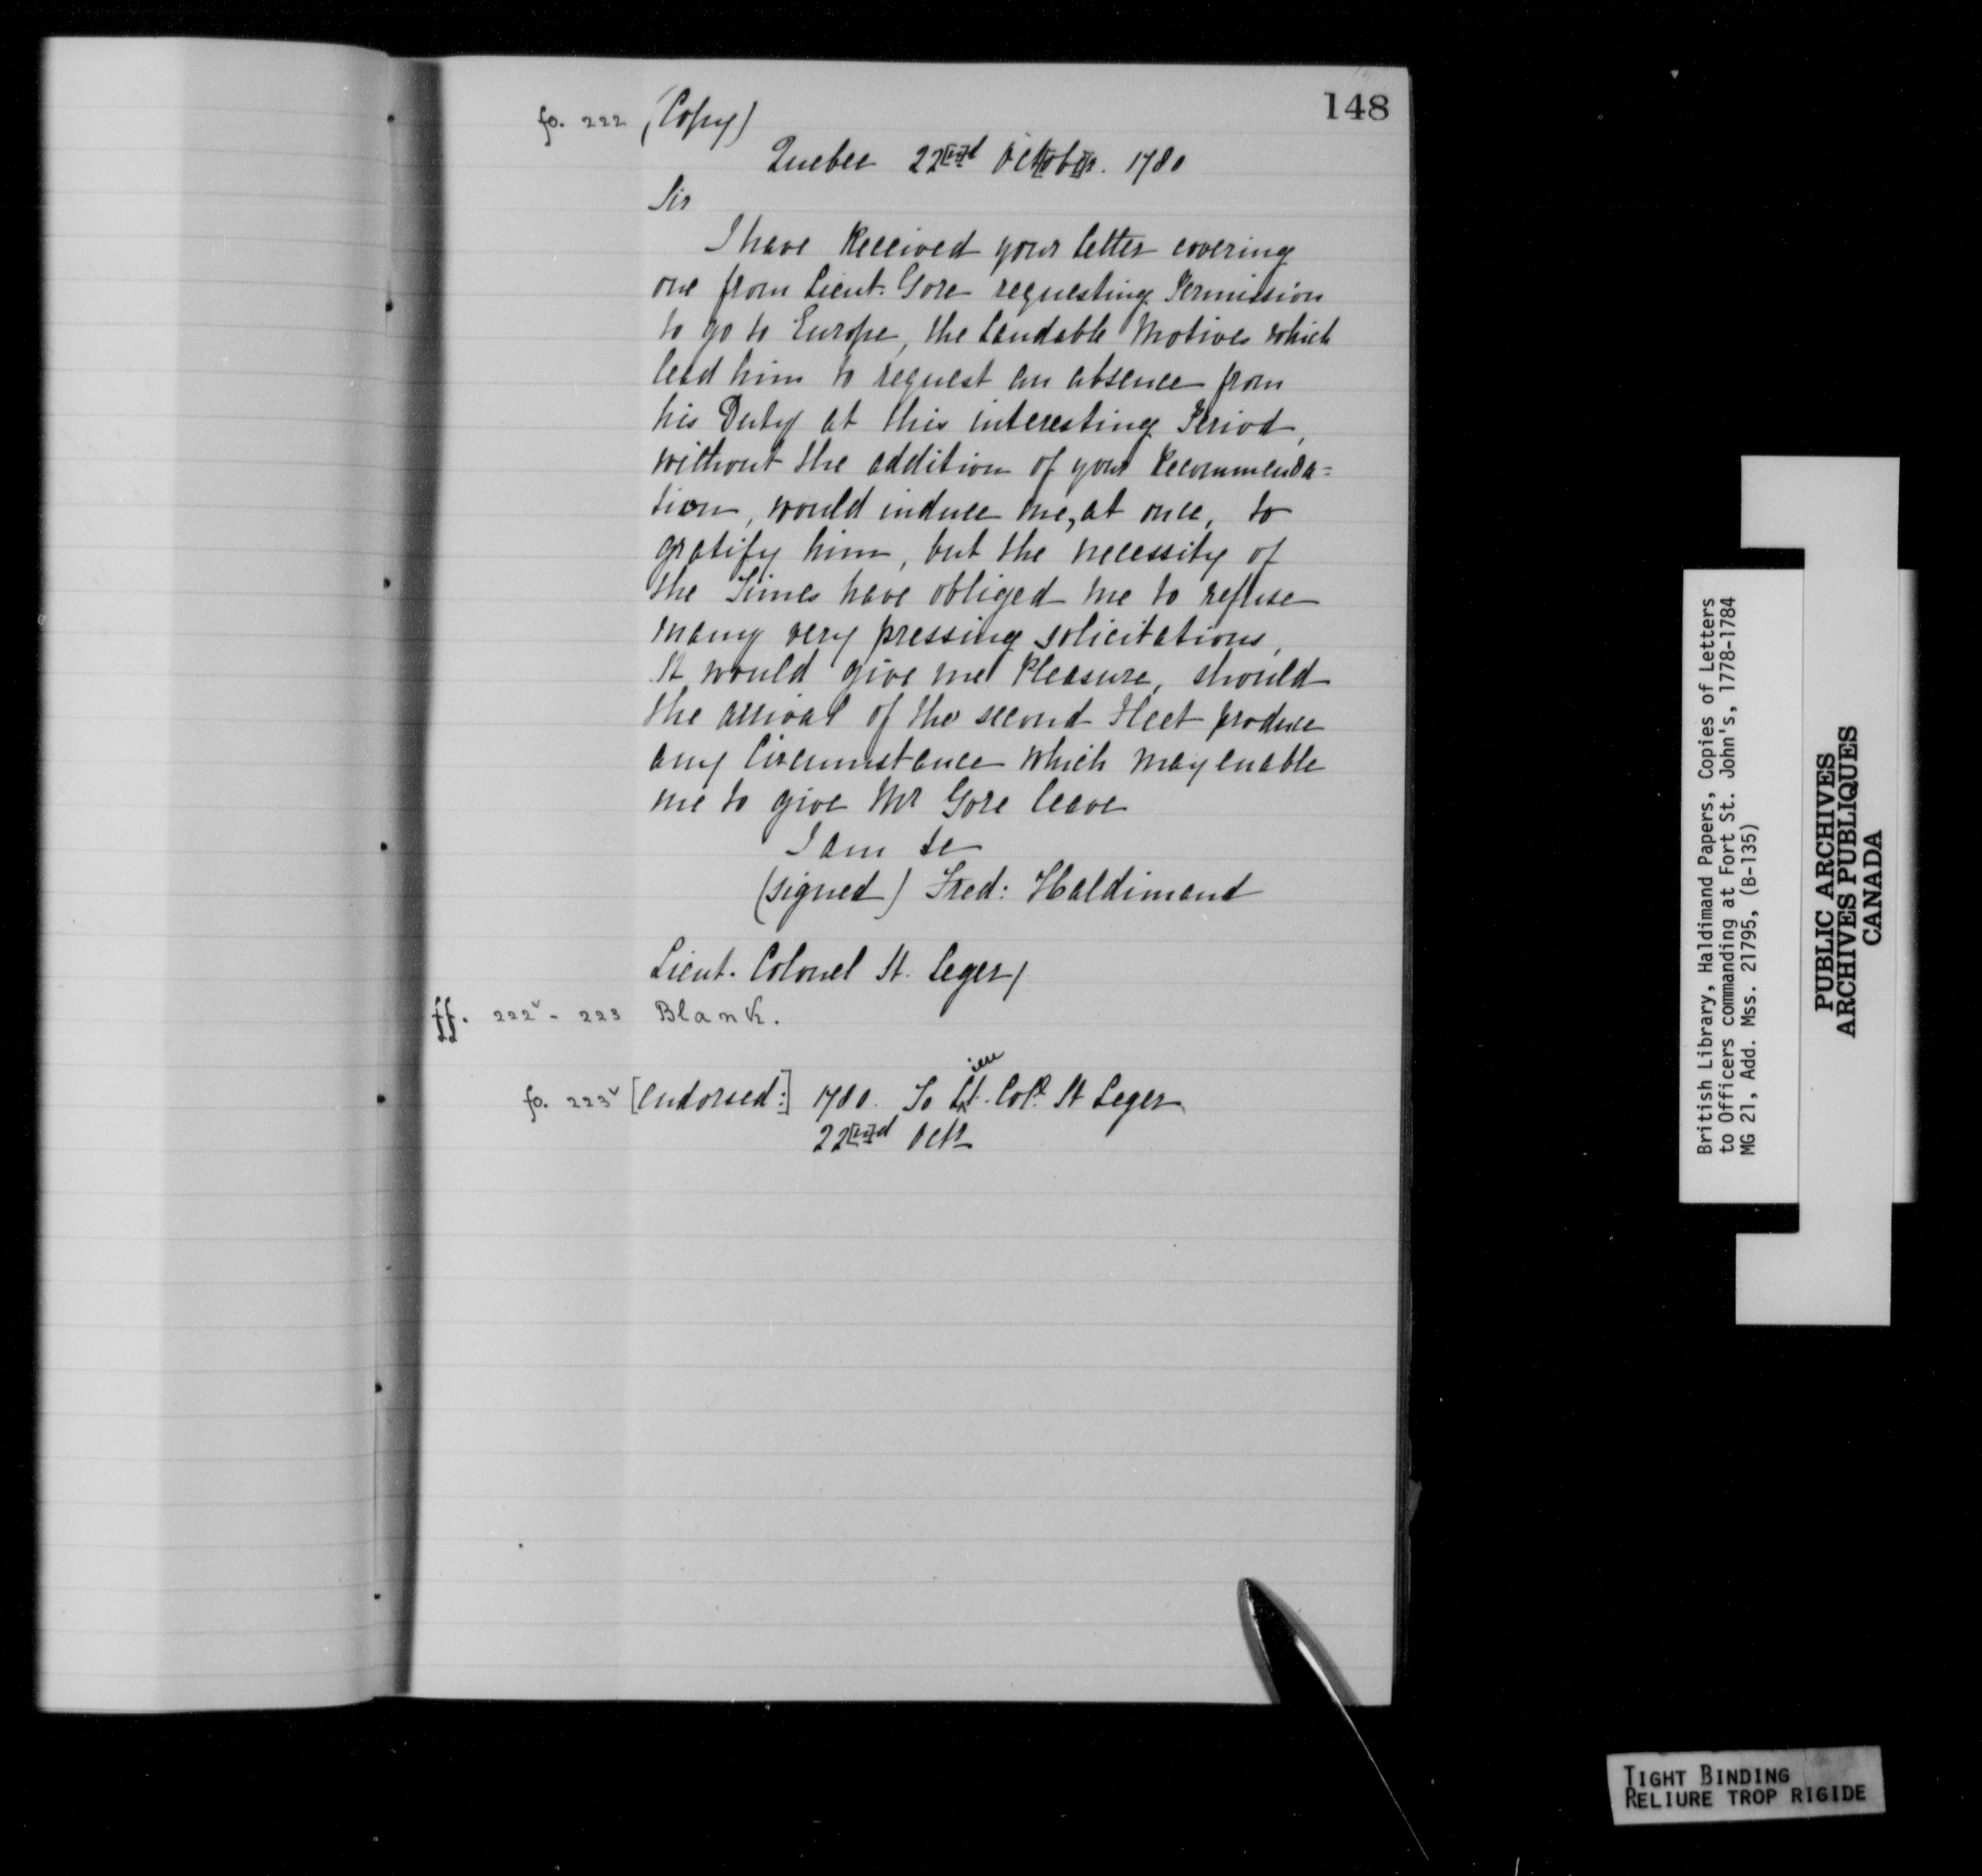 148
fo. 222 (Copy)
Quebec 22[n]d Oct[o]b[e]r. 1780
Sir
I have Received your letter covering
one from Lieut. Gore requesting Permission
to go to Europe, the Laudable Motives which
lead him to request an absence from
his Duty at this interesting Period,
without the addition of your Recommenda=
tion, would induce me, at once, to
gratify him, but the necessity of
the Times have obliged me to refuse
many very pressing solicitations,
It would give me Pleasure, should
the arrival of the second Fleet produce
any Circumstance which may enable
me to give Mr Gore leave
I am &c
(signed) Fred: Haldimand
Lieut. Colonel St. Leger/
ff. 222v - 223 Blank.
fo. 223v [Endorsed:] 1780. To Lieut. Col. St Leger
22[n]d Octr
British Library, Haldimand Papers, Copies of Letters
to Officers commanding at Fort St. John's, 1778-1784
MG 21, Add. Mss. 21795, (B-135)
PUBLIC ARCHIVES
ARCHIVES PUBLIQUES
CANADA
TIGHT BINDING
RELIURE TROP RIGIDE